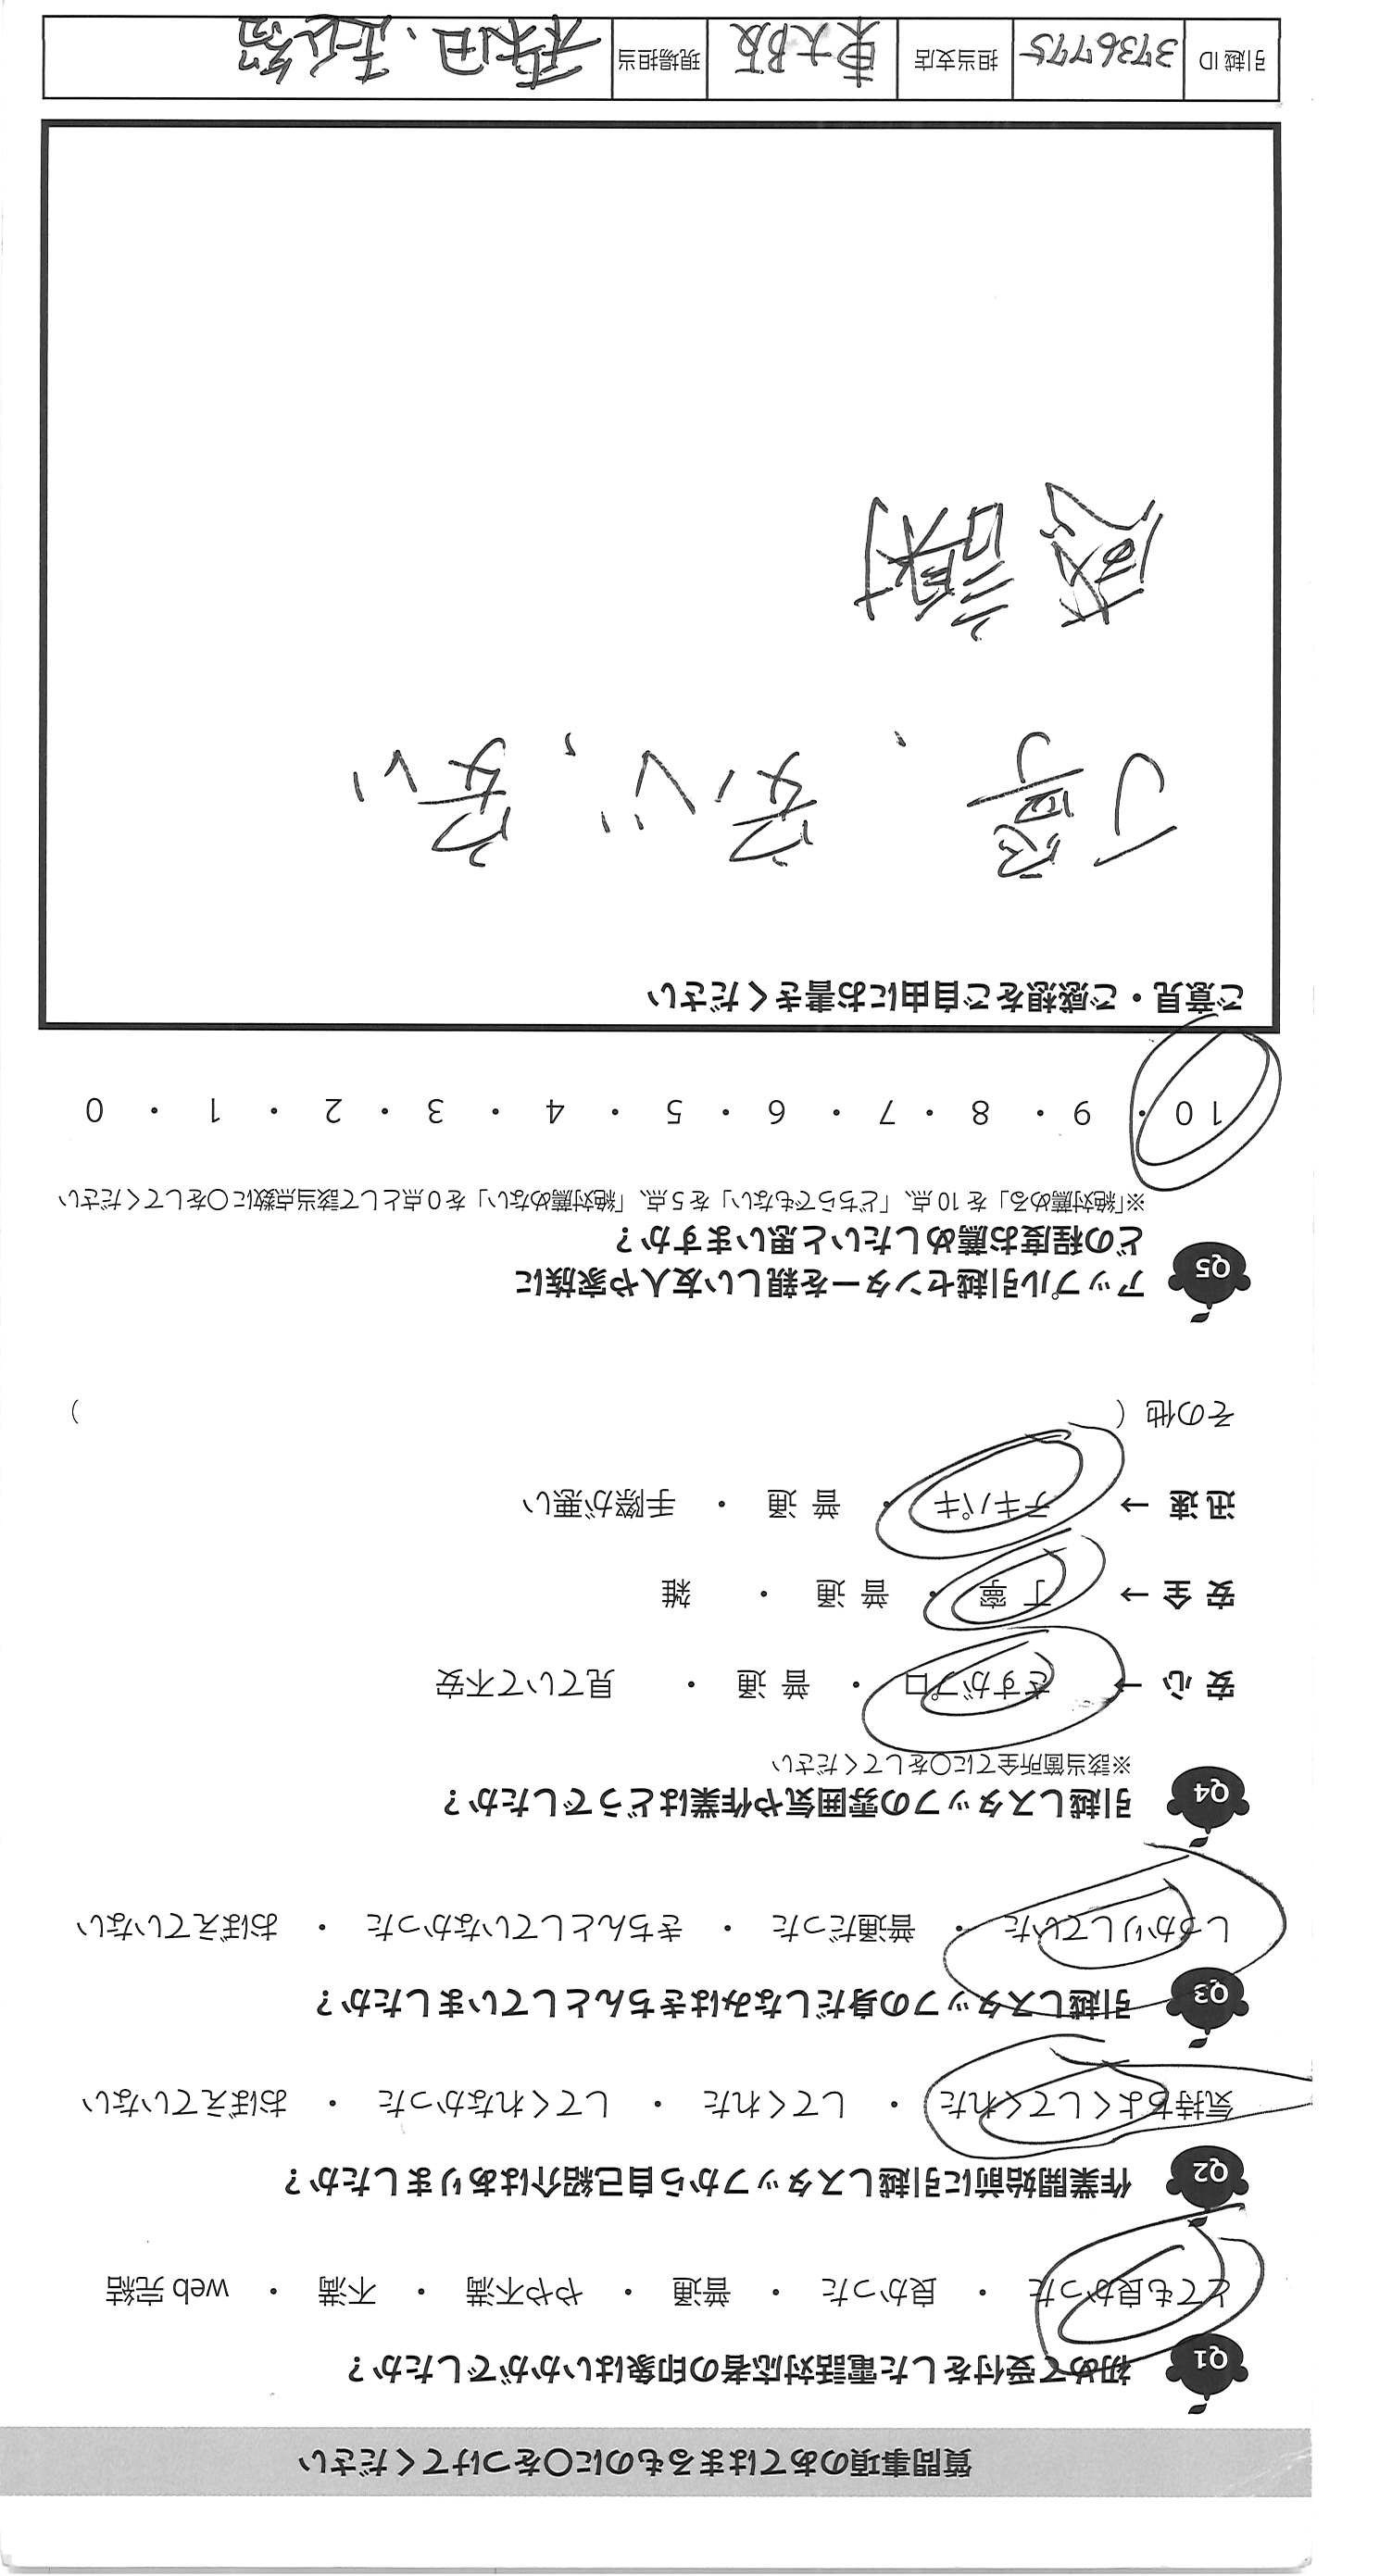 質問事項のあてはまるものに〇をつけてください
Q1 初めて受付をした電話対応者の印象はいかがでしたか？
とても良かった ・ 良かった ・ 普通 ・ やや不満 ・ 不満 ・ web 完結
Q2 作業開始前に引越しスタッフから自己紹介はありましたか？
気持ちよくしてくれた ・ してくれた ・ してくれなかった ・ おぼえていない
Q3 引越しスタッフの身だしなみはきちんとしていましたか？
しっかりしていた ・ 普通だった ・ きちんとしていなかった ・ おぼえていない
Q4 引越しスタッフの雰囲気や作業はどうでしたか？
※該当箇所全てに〇をしてください
安心 → さすがプロ ・ 普通 ・ 見ていて不安
安全 → 丁寧 ・ 普通 ・ 雑
迅速 → テキパキ ・ 普通 ・ 手際が悪い
その他（ ）
Q5 アップル引越センターを親しい友人や家族に
どの程度お薦めしたいと思いますか？
※「絶対薦める」を 10 点、「どちらでもない」を 5 点、「絶対薦めない」を 0 点として該当点数に〇をしてください
10 ・ 9 ・ 8 ・ 7 ・ 6 ・ 5 ・ 4 ・ 3 ・ 2 ・ 1 ・ 0
ご意見・ご感想をご自由にお書きください
丁寧、安心、安い
感謝
引越 ID 3736775 担当支店 東大阪 現場担当